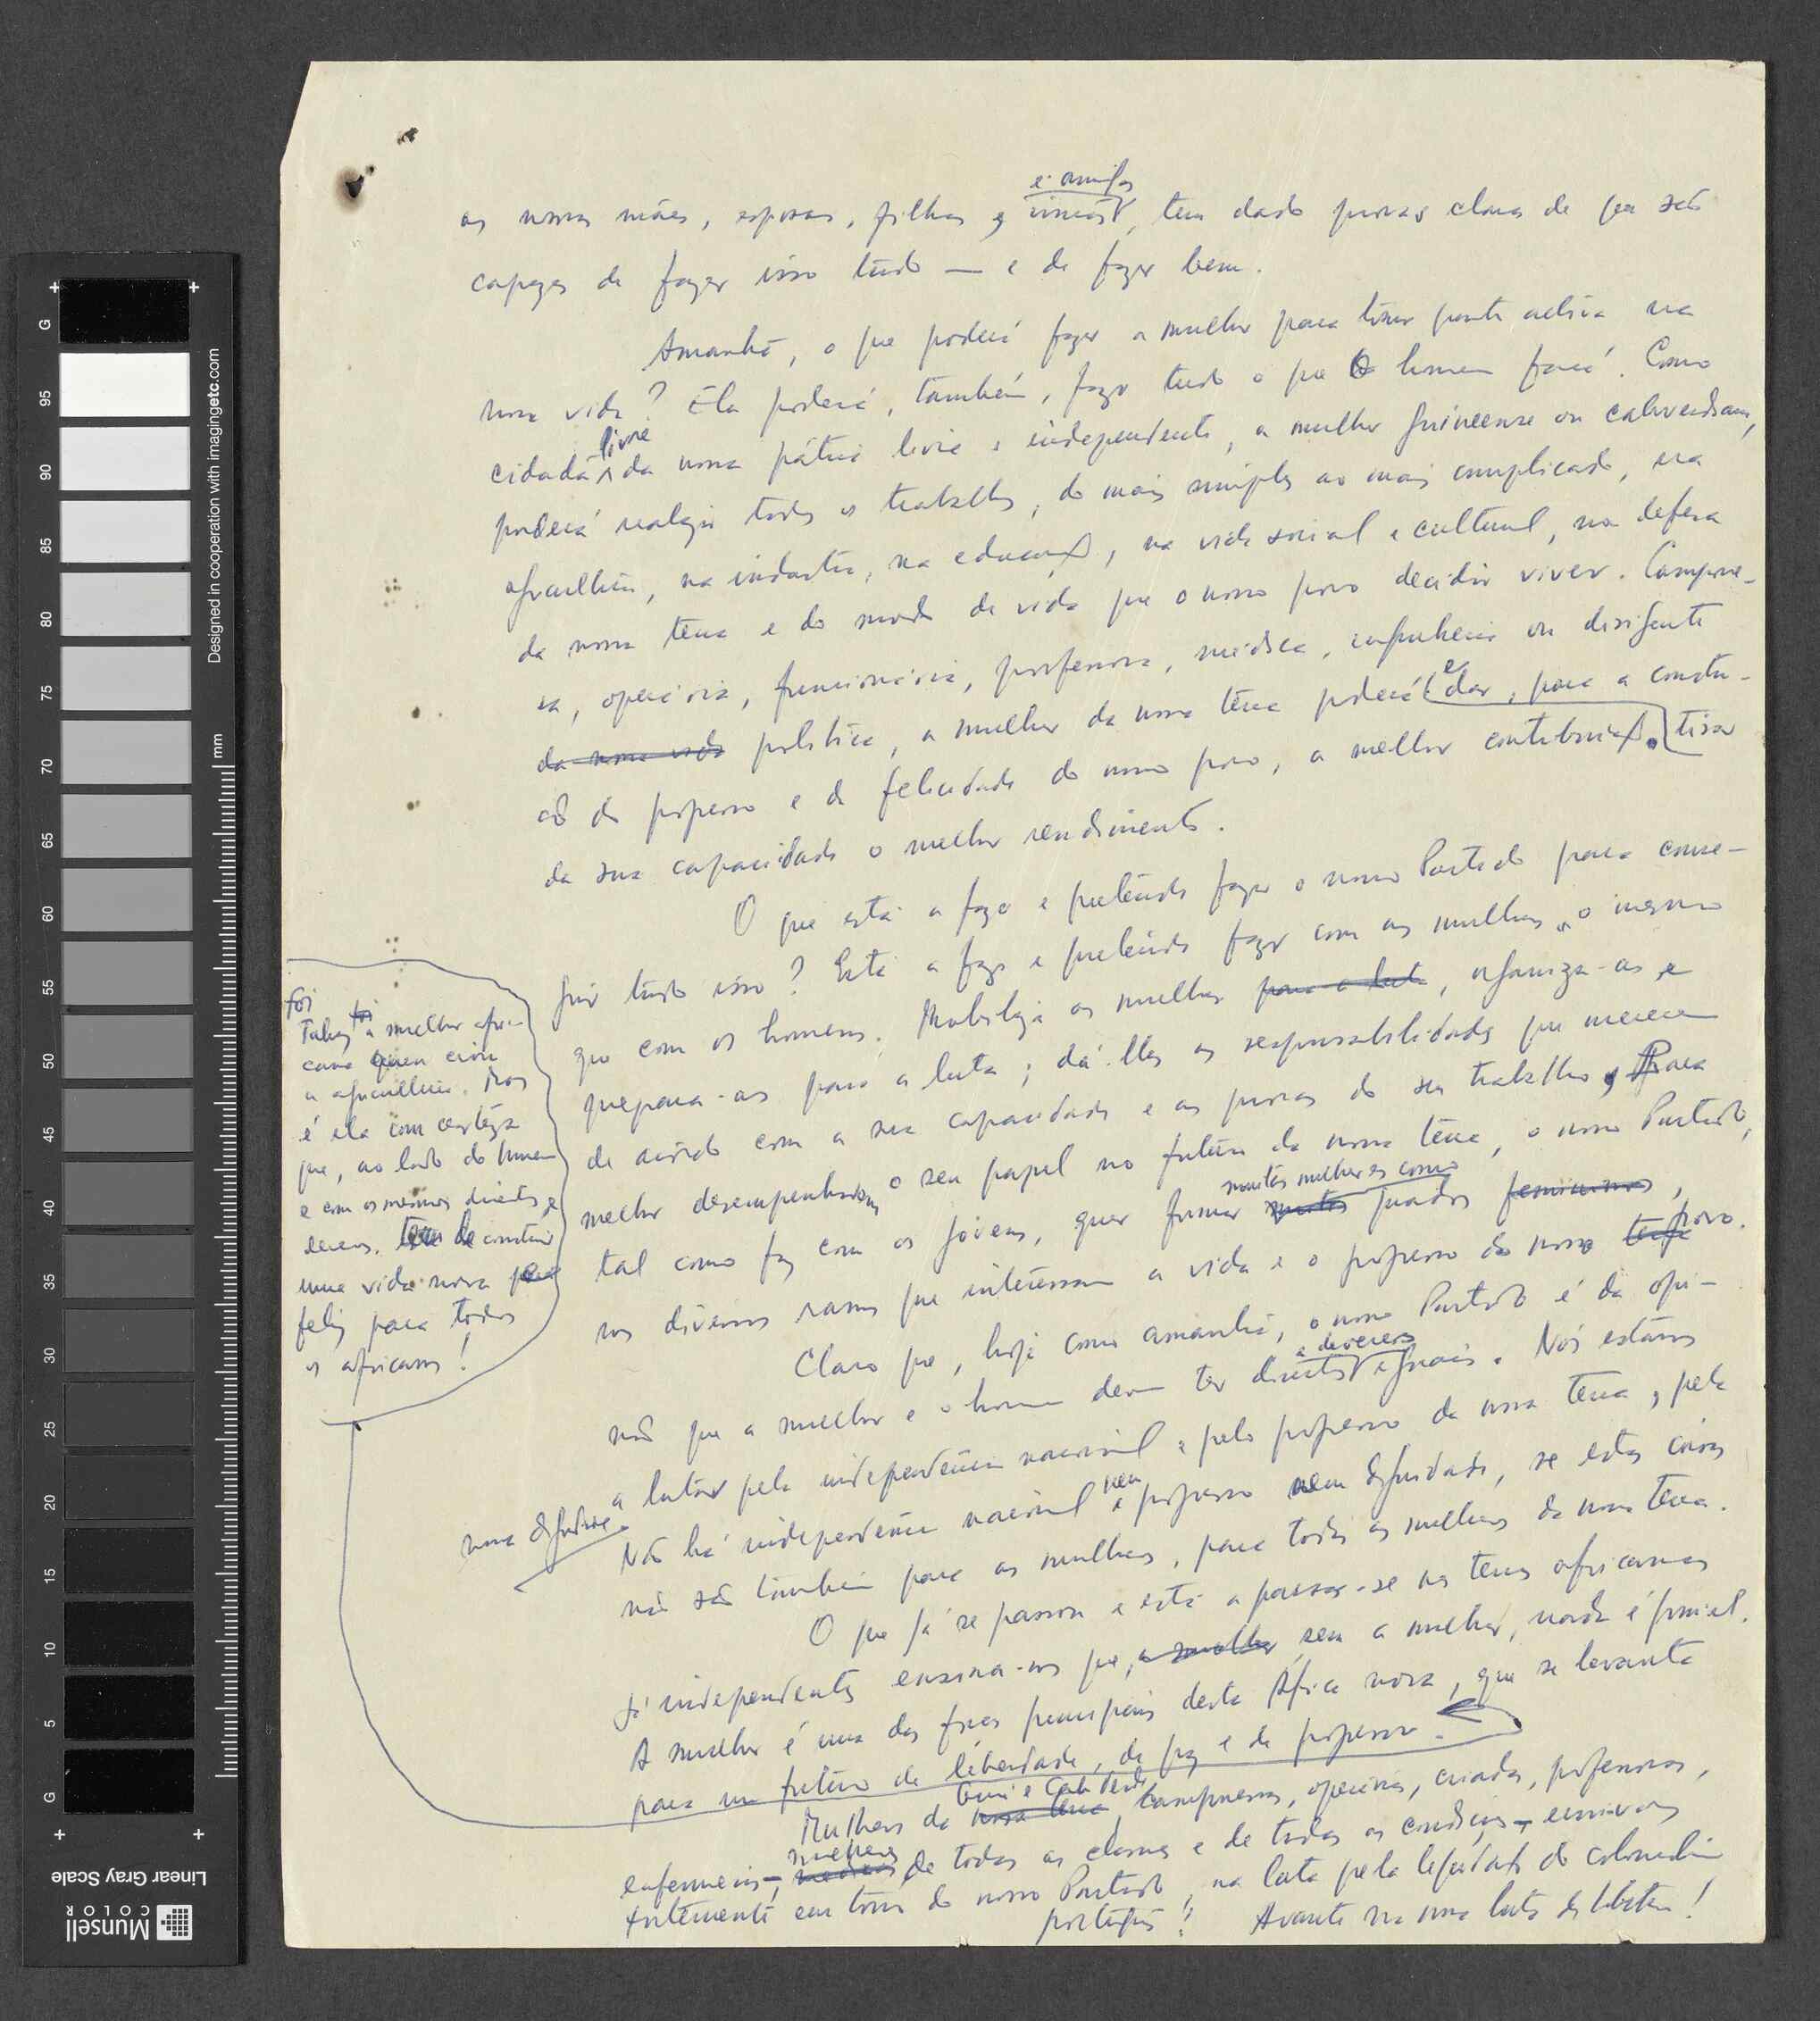 as nossas mães, esposas, filhas, irmãs e amigas, têm dado provas claras de que são
capazes de fazer isso tudo — e de fazer bem.
Amanhã, o que poderá fazer a mulher para tomar parte activa na
nossa vida? Ela poderá, também, fazer tudo o que o homem fará. Como
cidadã livre da nossa pátria livre e independente, a mulher guineense ou caboverdeana,
poderá realizar todos os trabalhos, do mais simples ao mais complicado, na
agricultura, na indústria, na educação, na vida social e cultural, na defesa
da nossa terra e do modo de vida que o nosso povo decidir viver. Campone-
sa, operária, funcionária, professora, médica, engenheira ou dirigente
da nossa vida política, a mulher da nossa terra poderá e dar, para a constru-
ção do progresso e da felicidade do nosso povo, a melhor contribuição. tirar
da sua capacidade o melhor rendimento.
O que está a fazer e pretende fazer o nosso Partido para conse-
guir tudo isso? Está a fazer e pretende fazer com as mulheres o mesmo
que com os homens. Mobiliza as mulheres para a luta, organiza-as e
prepara-as para a luta; dá-lhes as responsabilidades que merecem
de acôrdo com a sua capacidade e as provas do seu trabalho. Para
melhor desempenharem o seu papel no futuro da nossa terra, o nosso Partido,
tal como faz com os jóvens, quer formar muitos muitas mulheres como quadros femininos,
nos diversos ramos que interessam a vida e o progresso do nosso povo.
Claro que, hoje como amanhã, o nosso Partido é da opi-
nião que a mulher e o homem devem ter direitos e deveres iguais. Nós estamos
a lutar pela independência nacional e pelo progresso da nossa terra, pela
nossa dignidade.
Não há independência nacional nem progresso nem dignidade, se estas coisas
não são também para as mulheres, para todas as mulheres da nossa terra.
O que já se passou e está a passar-se nas terras africanas
já independentes ensina-nos que, a mulher sem a mulher, nada é possível.
A mulher é uma das forças principais desta África nova, que se levanta
para um futuro de liberdade, de paz e de progresso.
foi
Talvez foi a mulher afri-
cana quem criou
a agricultura. Mas
é ela com certeza
que, ao lado do homem
e com os mesmos direitos e
deveres, tem de construir
uma vida nova
feliz para todos
os africanos!
Mulheres da nossa terra Guiné e Cabo Verde, camponesas, operárias, criadas, professoras,
enfermeiras —, mulheres de todas as classes e de todas as condições — uni-vos
fortemente em torno do nosso Partido, na luta pela liquidação do colonialismo
português! Avante na nossa luta de libertação!